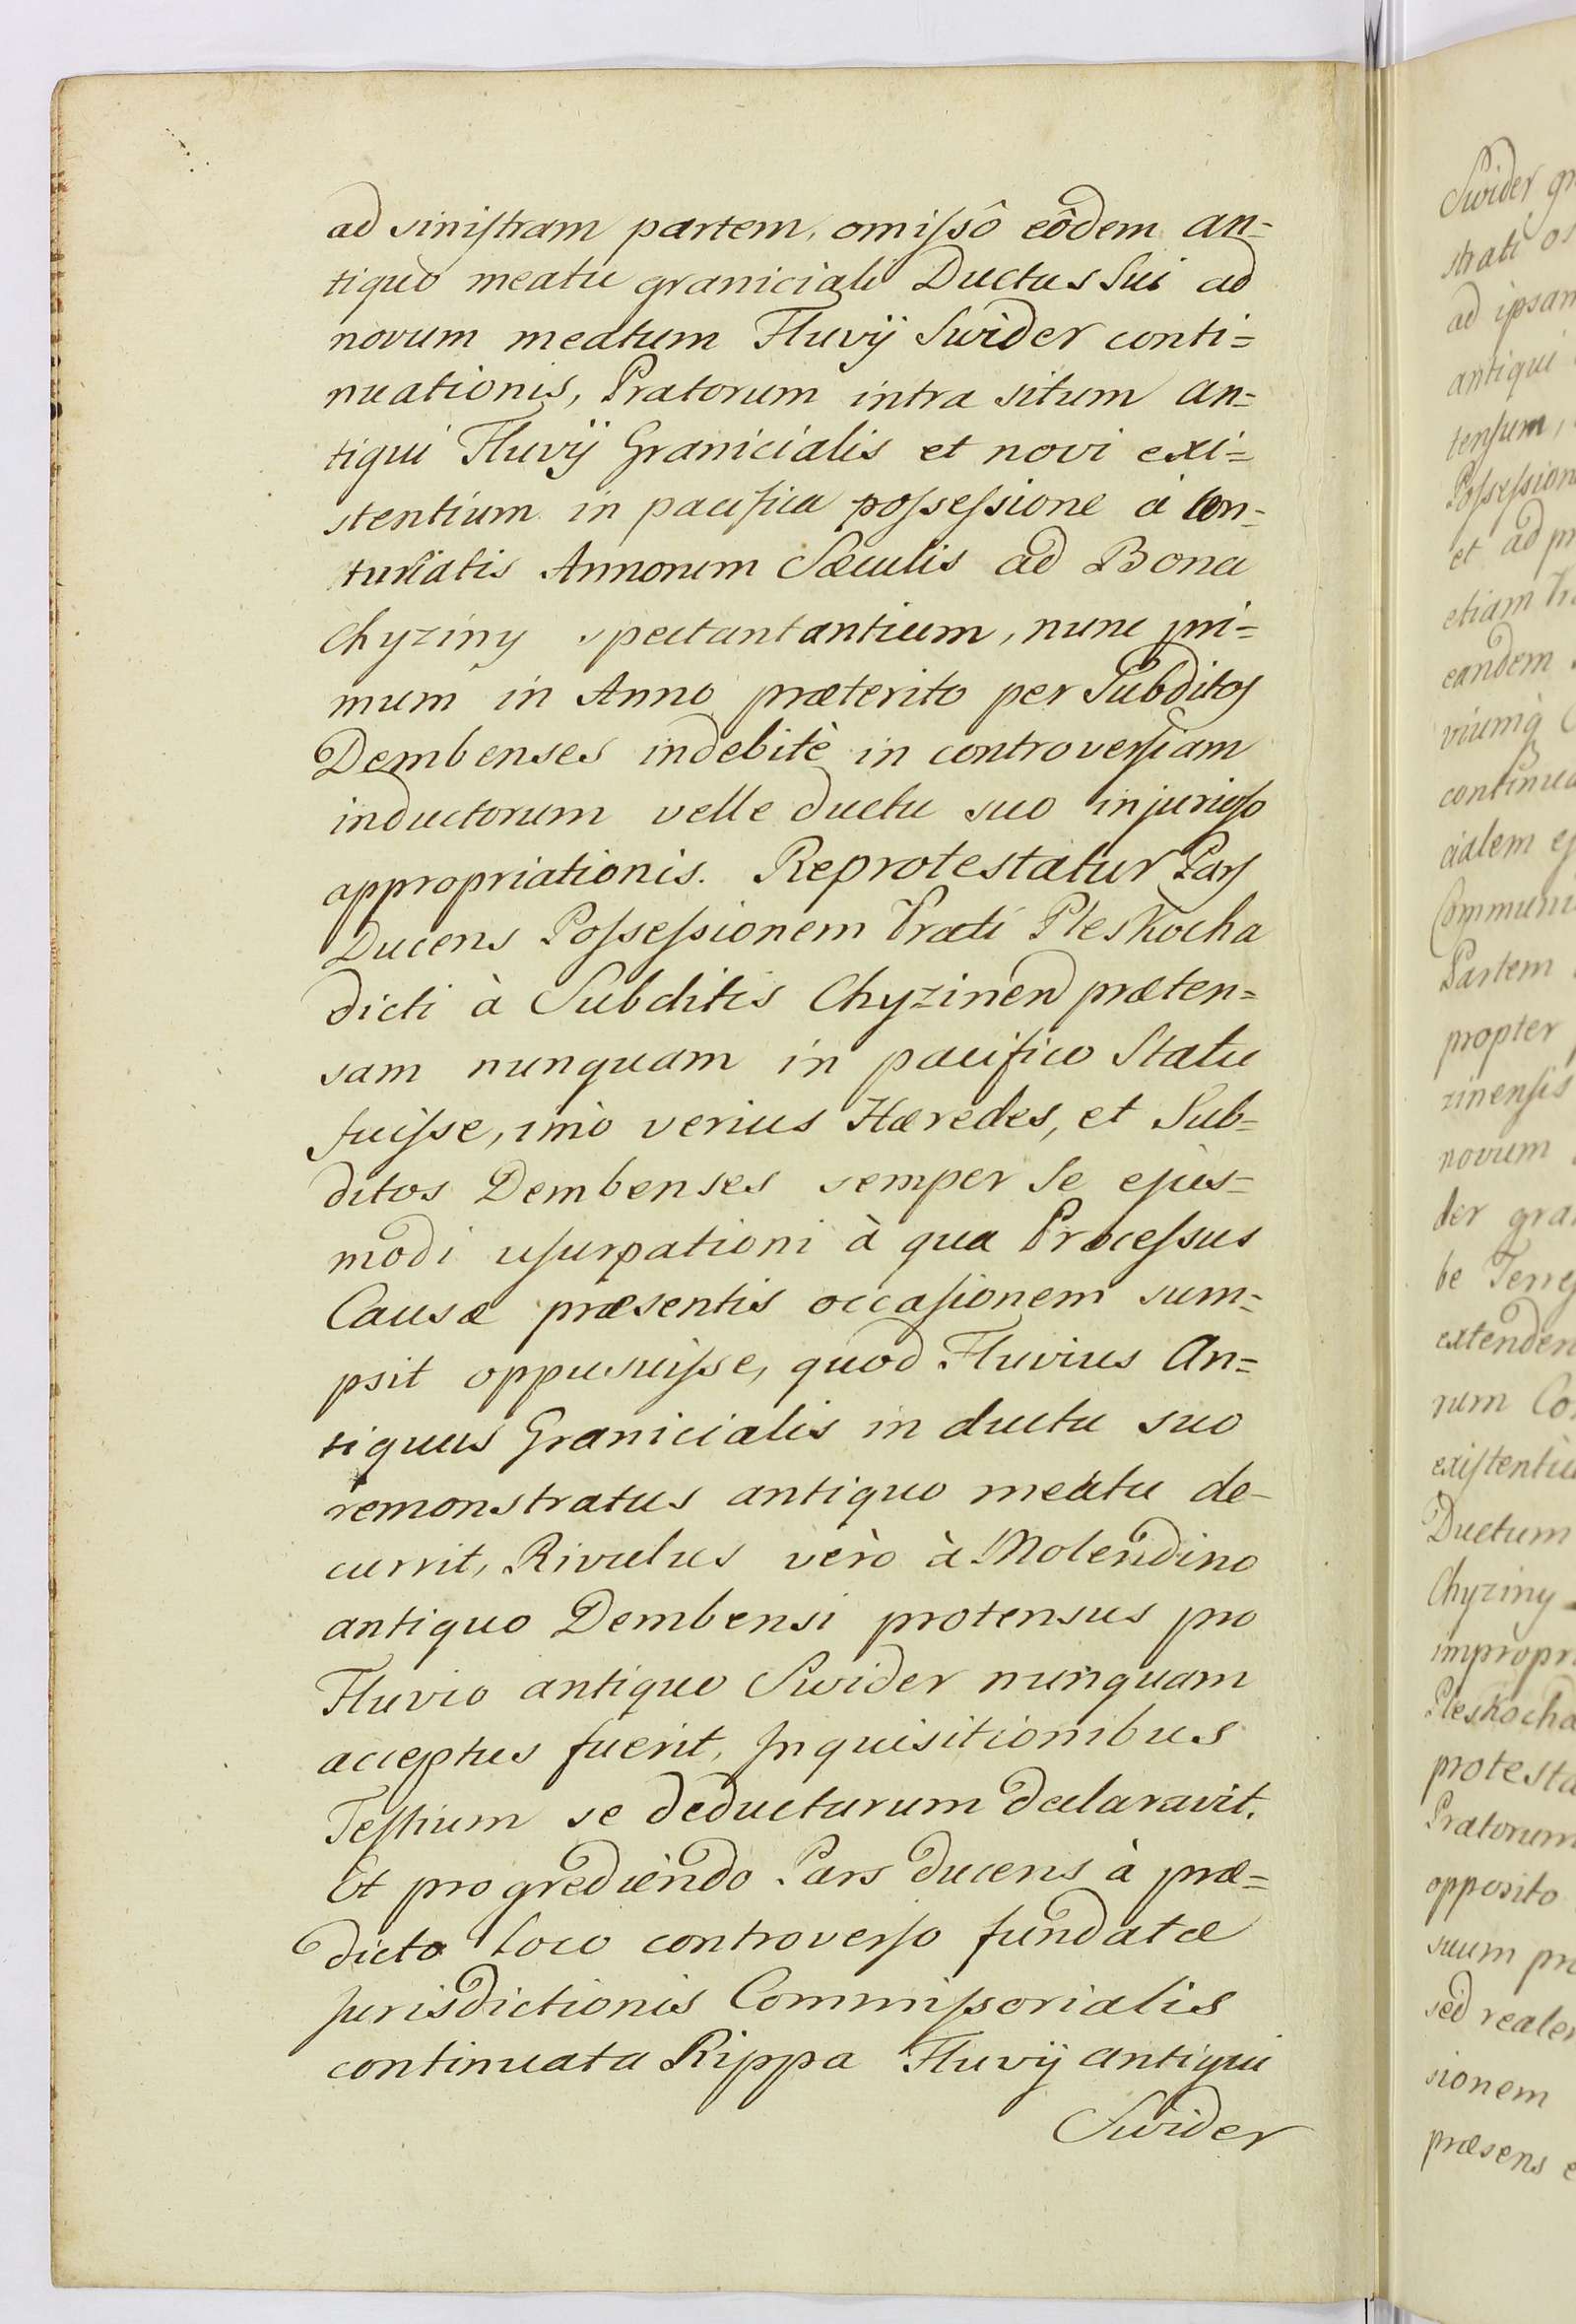 ad sinistram partem, omissô eôdem an=
tiquo meatu graniciali Ductus sui ad
novum meatum Fluvij Swider conti=
nuationis, Pratorum intra situm an=
tiqui Fluvij Granicialis et novi exi=
stentium in pacifica possessione à cen=
turiatis Annorum Sæculis ad Bona
Chyziny spectantantium, nunc pri=
mum in Anno præterito per Subditos
Dembenses indebitè in controversiam
inductorum velle ductu suo injurioso
appropriationis. Reprotestatur Pars
Ducens Possessionem Prati Pleskocha
dicti à Subditis Chyzinen præten=
sam nunquam in pacifico Statu
fuisse, imò verius Hæredes, et Sub=
ditos Dembenses semper se ejus=
modi usurpationi à qua Processus
Causæ præsentis occasionem sum=
psit oppusuisse, quod Fluvius An=
tiquus Granicialis in ductu suo
remonstratus antiquo meatu de-
currit, Rivulus verò à Molendino
antiquo Dembensi protensus pro
Fluvio antiquo Swider nunquam
acceptus fuerit, Inquisitionibus
Testium se deducturum declaravit.
Et progrediendo Pars ducens à præ=
dicto loco controverso fundatæ
Jurisdictionis Commissorialis
continuata Rippa Fluvij antiqui
Swider
Swider
strati
ad ipsam
antiqui
tensum,
et ad
etiam
eandem
propter
zinensis
novum
der
be
rum
Ductum
Chyziny
Pleskocha
Pratorum
opposito
suum
sed
sionem
præsens